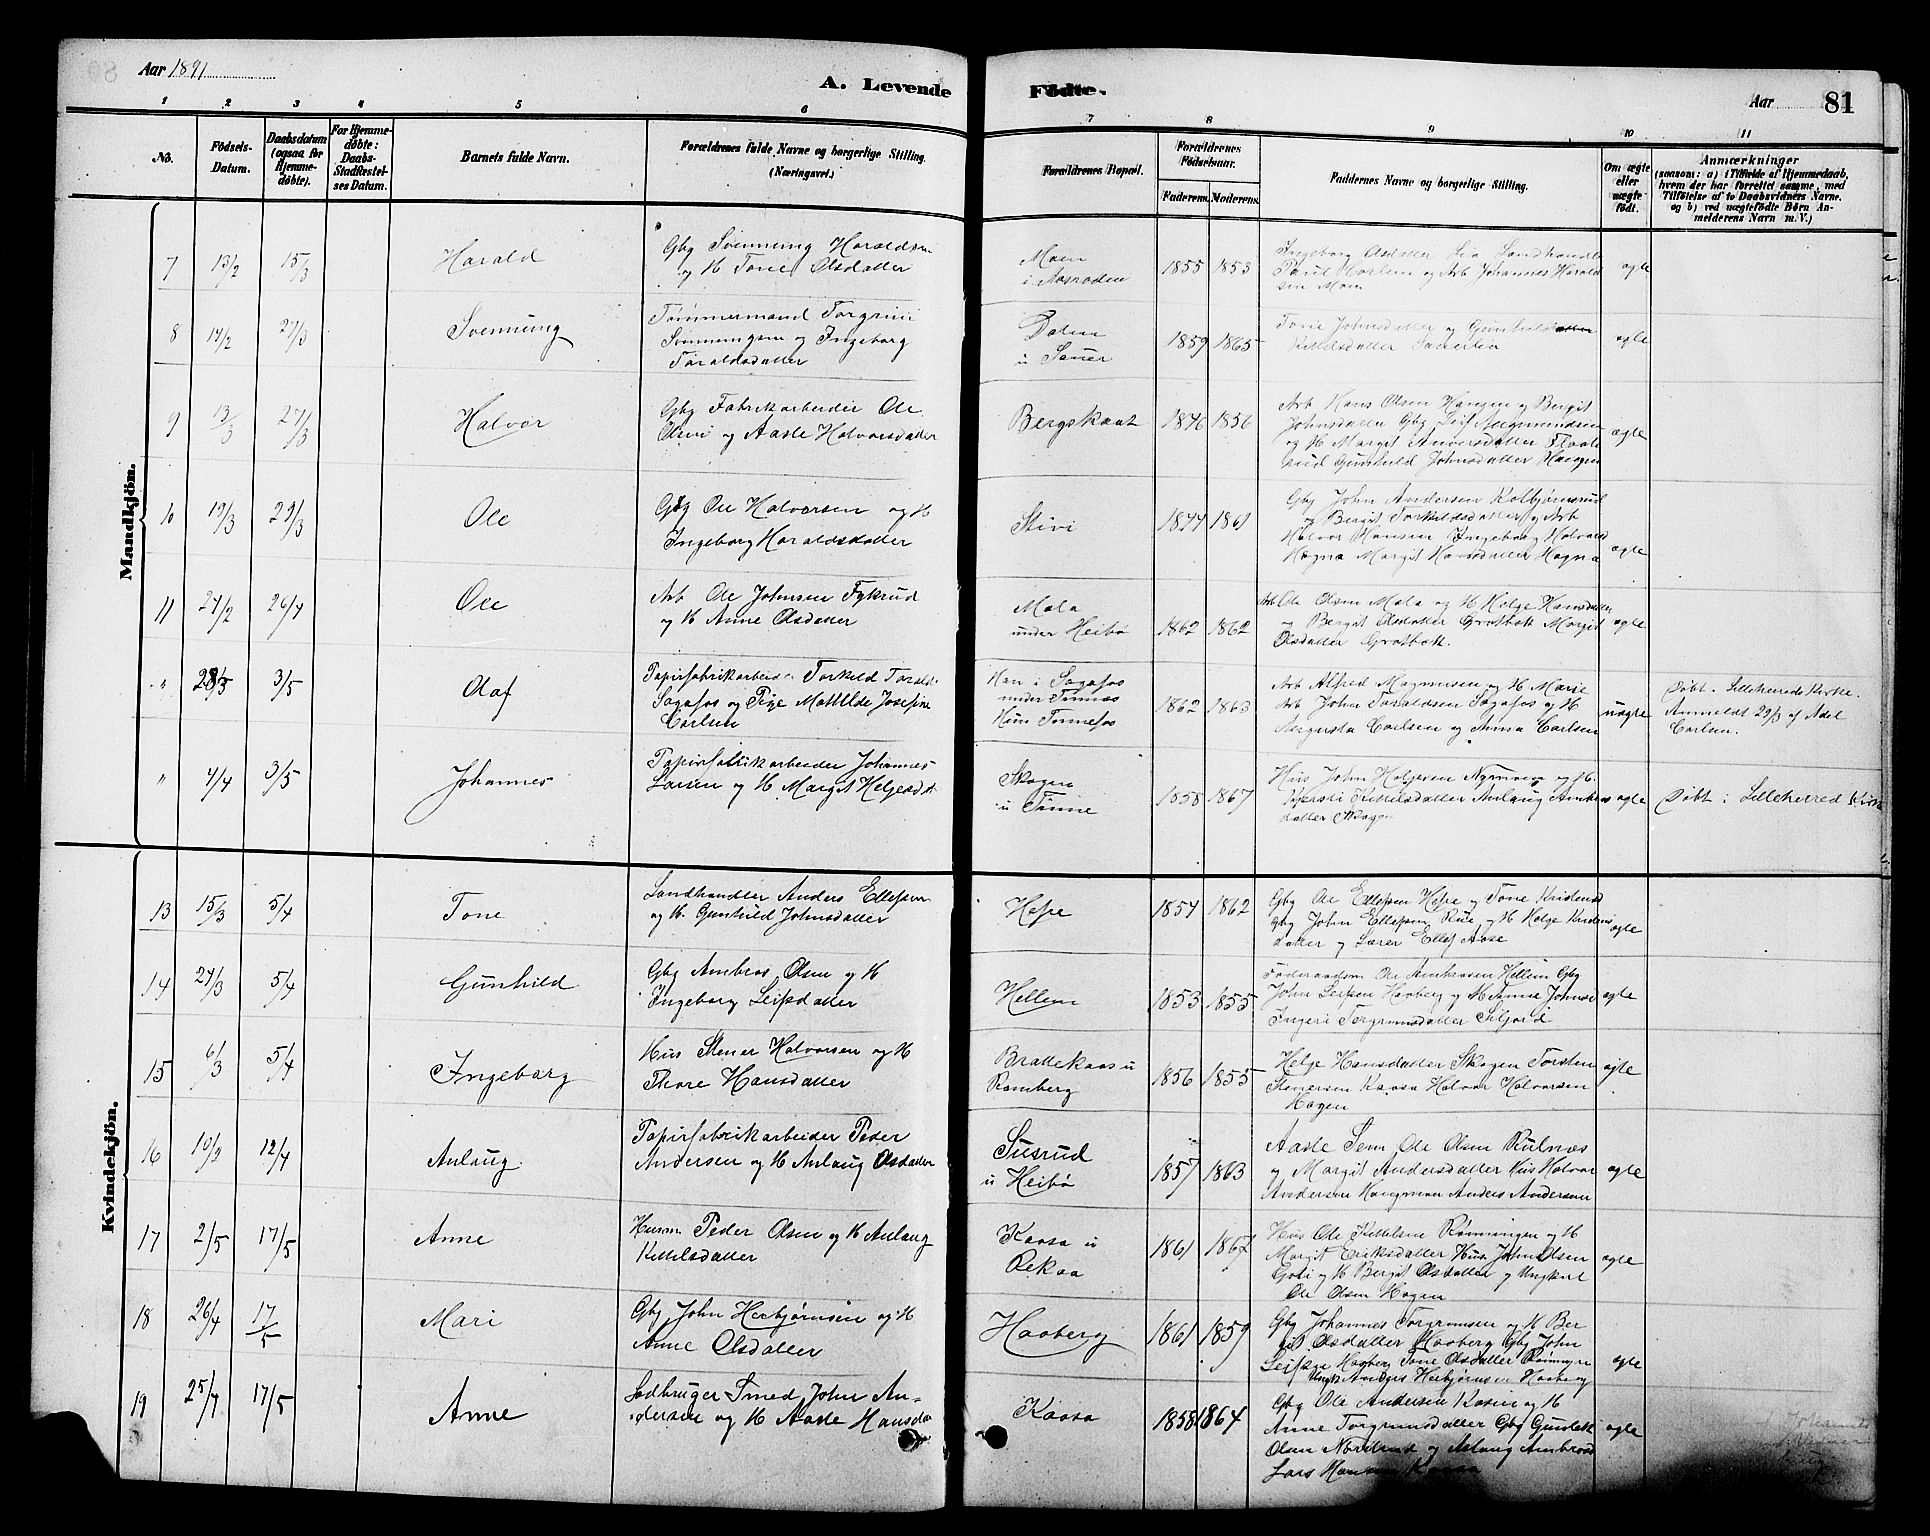 Aar 1891
A. Levende Fødte.
Aar 81
1 2 3 4 5 6 7 8 9 10 11
No.
Fødsels-Datum.
Daabsdatum (ogsaa for Hjemmedøbte).
For Hjemmedøbte: Daabs-Stadfæstelses Datum.
Barnets fulde Navn.
Forældrenes fulde Navne og borgerlige Stilling.
(Næringsvei.)
Forældrenes Bopæl.
Forældrenes Fødselsaar.
Faderens. Moderens.
Faddernes Navne og borgerlige Stilling.
Om ægte eller uægte født.
Anmærkninger
(saasom: a) i Tilfælde af Hjemmedaab,
hvem der har forrettet samme, med
Tilføielse af to Daabsvidners Navne.
og b) ved uægtefødte Børn Anmelderens Navn m. V.)
Mandkjön.
7 13/2 15/3 Harald
Gbg Svennung Haraldsen
og H Tone Olsdatter
Moen
1855 1853
Ingeborg Olsdatter Lia Landhandler
Johannes Harald
sen Moen
ægte
8 14/2 27/3 Svennung
Tømmermand Torgrim
Svennungsen og Ingeborg
Toraldsdatter
Dalen
u Sauer
1859 1865
Tone Johnsdatter og Gunhild
Kittilsdatter
ægte
9 13/3 27/3 Halvor
Gbg Fabrikarbeider Ole
og Aasle Halvorsdatter
Bergskaat
1846 1856
Arb Hans Olsen Haugen og Bergit
Johnsdatter Gbg Leif Augmundsen
og H Margit
Gunhild Johnsdatter Haugen
ægte
10 19/3 29/3 Ole
Gbg Ole Halvorsen og H
Ingeborg Haraldsdatter
Stivi
1844 1861
Gbg John Andersen Kolbjørnsrud
og Bergit Torkildsdatter og Arb
Halvor Hansen Ingeborg Halvorsd
Høgna Margit Hansdatter Høgna
ægte
11 24/2 26/4 Ole
Arb Ole Johnsen Fykrud
og H Anne Olsdatter
Mala
under Heibø
1862 1862
Arb Ole Olsen Mala og H Helge Hansdatter
og Bergit Olsdatter Grotbæk Margit
Olsdatter Grotbæk.
ægte
" 28/3 3/5 Olaf
Papirfabrikarbeider Torkild Torald.
Sagafos og Pige Mathilde Josefine
Carlsen
Han i Sagafos
under Tinnæs
Hun Tinnefos
1862 1863
Arb Alfred Magnusen og H Marie
Arb John Toraldsen Sagafos og H
Augusta Carlsen og Anna Carlsen
uægte
Døbt i Lilleherreds Kirke.
Anmeldt 29/3 af Adel
Carlsen.
" 4/4 3/5 Johannes
Papirfabrikarbeider Johannes
Larsen og H Margit Helgesdt
Skogen
u Tinne
1858 1867
Hus John Helgesen Nymoen og H.
Kjersti Kittilsdatter Anlaug
datter Skogen
ægte
Døbt i Lilleherred Kirke
Kvindekjön.
13 15/3 5/4 Tone
Landhandler Anders Ellefsen
og H. Gunhild Johnsdatter
Hefre
1854 1862
Gbg Ole Ellefsen Hefre og Tone Kristensd
Gbg John Ellefsen Rue og H Helge Kristens
datter og Lærer Ellef Aase
ægte
14 24/3 5/4 Gunhild
Gbg Ambros Olsen og H
Ingeborg Leifsdatter
Hellem
1853 1855
Føderaadsm Ole Ambrosen Hellem Gbg
John Leifsen Haaberg og H Anne Johnsd
Ingeri Torgrimsdatter Siljord
ægte
15 6/3 5/4 Ingeborg
Hus Stener Halvorsen og H
Thore Hansdatter
Brattekaas u
Romberg
1856 1855
Helge Hansdatter Skogen Torsten
Stenersen Kaasa Halvor Halvorsen
Hagen
ægte
16 10/3 12/4 Anlaug
Papirfabrikarbeider Peder
Andersen og H Anlaug Olsdatter
Susrud
u Heibø
1857 1863
Aasle Sem Ole Olsen Rulnæs
og Margit Andersdatter Hus Halvor
Andersen Anders Andersen
ægte
17 2/5 17/5 Anne
Husm Peder Olsen og H Anlaug
Kittilsdatter
Kaasa u
Rekaa
1861 1867
Hus Ole Kittilsen Rønningen og H
Margit Eriksdatter Hus John Olsen
og H Bergit Olsdatter og Ungkarl
Ole Olsen Hagen
ægte
18 26/4 17/5 Mari
Gbg John Herbjørnsen og H
Anne Olsdatter
Haaberg
1861 1859
Gbg Johannes Torgrimsen og H Ber
git Olsdatter Haaberg Gbg John
Leifsen Haaberg Tone Olsdatter
Ungk Anders Herbjørnsen Haaberg
ægte
19 25/4 17/5 Anne
Jordbruger-Smed John An-
dersen og H Aasle Hansda
Kaasa
1858 1864
Gbg Ole Andersen Kasin og H
Anne Torgrimsdatter Gbg Gunleik
Olsen Nordlund og Aslaug Ambrosd
Lars Hansen Kaasa
ægte